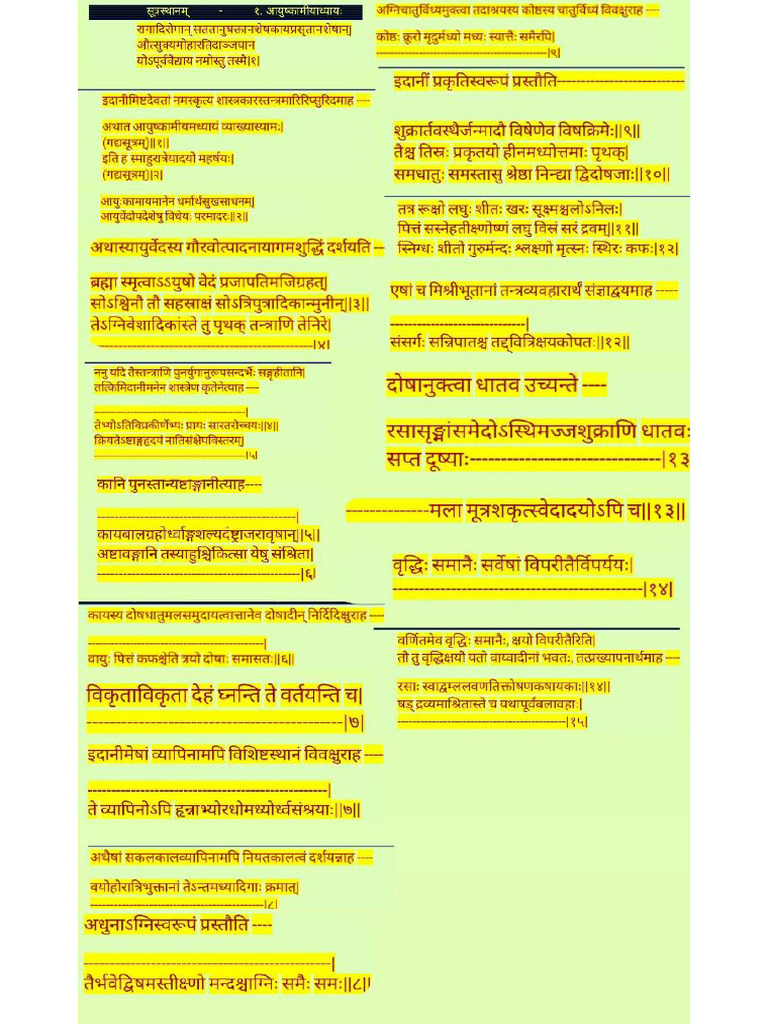 सूत्रस्थानम् - १. आयुष्कामीयाध्यायः
रागादिरोगान् सततानुषक्तानशेषकायप्रसृतानशेषान्|
औत्सुक्यमोहारतिदाञ्जघान
योऽपूर्ववैद्याय नमोस्तु तस्मै|१|
इदानीमिष्टदेवतां नमस्कृत्य शास्त्रकारस्तन्त्रमारिरिप्सुरिदमाह ----
अथात आयुष्कामीयमध्यायं व्याख्यास्यामः|
(गद्यसूत्रम्)||१||
इति ह स्माहुरात्रेयादयो महर्षयः|
(गद्यसूत्रम्)|२|
आयुःकामायमानेन धर्मार्थसुखसाधनम्|
आयुर्वेदोपदेशेषु विधेयः परमादरः||२||
अथास्यायुर्वेदस्य गौरवोत्पादनायागमशुद्धिं दर्शयति ---
ब्रह्मा स्मृत्वाऽऽयुषो वेदं प्रजापतिमजिग्रहत्|
सोऽश्विनौ तौ सहस्राक्षं सोऽत्रिपुत्रादिकान्मुनीन्||३||
तेऽग्निवेशादिकांस्ते तु पृथक् तन्त्राणि तेनिरे|
--------------------------------------------------|४|
ननु यदि तैस्तन्त्राणि पुनर्युगानुरूपसन्दर्भैः सङ्गृहीतानि|
तत्किमिदानीमनेन शास्त्रेण कृतेनेत्याह ----
--------------------------------------------------|
तेभ्योऽतिविप्रकीर्णेभ्यः प्रायः सारतरोच्चयः||४||
क्रियतेऽष्टाङ्गहृदयं नातिसंक्षेपविस्तरम्|
--------------------------------------------------|५|
कानि पुनस्तान्यष्टाङ्गानीत्याह----
--------------------------------------------------|
कायबालग्रहोर्ध्वाङ्गशल्यदंष्ट्राजरावृषान्||५||
अष्टावङ्गानि तस्याहुश्चिकित्सा येषु संश्रिता|
--------------------------------------------------|६|
कायस्य दोषधातुमलसमुदायत्वात्तानेव दोषादीन् निर्दिदिक्षुराह ----
--------------------------------------------------|
वायुः पित्तं कफश्चेति त्रयो दोषाः समासतः||६||
विकृताविकृता देहं घ्नन्ति ते वर्तयन्ति च|
--------------------------------------------------|७|
इदानीमेषां व्यापिनामपि विशिष्टस्थानं विवक्षुराह ----
--------------------------------------------------|
ते व्यापिनोऽपि हृन्नाभ्योरधोमध्योर्ध्वसंश्रयाः||७||
अथैषां सकलकालव्यापिनामपि नियतकालत्वं दर्शयन्नाह ----
वयोहोरात्रिभुक्तानां तेऽन्तमध्यादिगाः क्रमात्|
--------------------------------------------------|८|
अधुनाऽग्निस्वरूपं प्रस्तौति ----
--------------------------------------------------|
तैर्भवेद्विषमस्तीक्ष्णो मन्दश्चाग्निः समैः समः||८||
अग्निचातुर्विध्यमुक्त्वा तदाश्रयस्य कोष्ठस्य चातुर्विध्यं विवक्षुराह ----
कोष्ठः क्रूरो मृदुर्मध्यो मध्यः स्यात्तैः समैरपि|
--------------------------------------------------|९|
इदानीं प्रकृतिस्वरूपं प्रस्तौति---------------------------
शुक्रार्तवस्थैर्जन्मादौ विषेणेव विषक्रिमेः||९||
तैश्च तिस्रः प्रकृतयो हीनमध्योत्तमाः पृथक्|
समधातुः समस्तासु श्रेष्ठा निन्द्या द्विदोषजाः||१०||
तत्र रूक्षो लघुः शीतः खरः सूक्ष्मश्चलोऽनिलः|
पित्तं सस्नेहतीक्ष्णोष्णं लघु विस्रं सरं द्रवम्||११||
स्निग्धः शीतो गुरुर्मन्दः श्लक्ष्णो मृत्स्नः स्थिरः कफः|१२|
एषां च मिश्रीभूतानां तन्त्रव्यवहारार्थं संज्ञाद्वयमाह -----
-----------------------------|
संसर्गः सन्निपातश्च तद्द्वित्रिक्षयकोपतः||१२||
दोषानुक्त्वा धातव उच्यन्ते ----
रसासृङ्मांसमेदोऽस्थिमज्जशुक्राणि धातवः
सप्त दूष्याः-------------------------------|१३
--------------मला मूत्रशकृत्स्वेदादयोऽपि च||१३||
वृद्धिः समानैः सर्वेषां विपरीतैर्विपर्ययः|
--------------------------------------------------|१४|
वर्णितमेव वृद्धिः समानैः, क्षयो विपरीतैरिति|
तौ तु वृद्धिक्षयौ यतो वाय्वादीनां भवतः, तत्प्रख्यापनार्थमाह ----
रसाः स्वाद्वम्ललवणतिक्तोषणकषायकाः||१४||
षड् द्रव्यमाश्रितास्ते च यथापूर्वंबलावहाः|
--------------------------------------------------|१५|